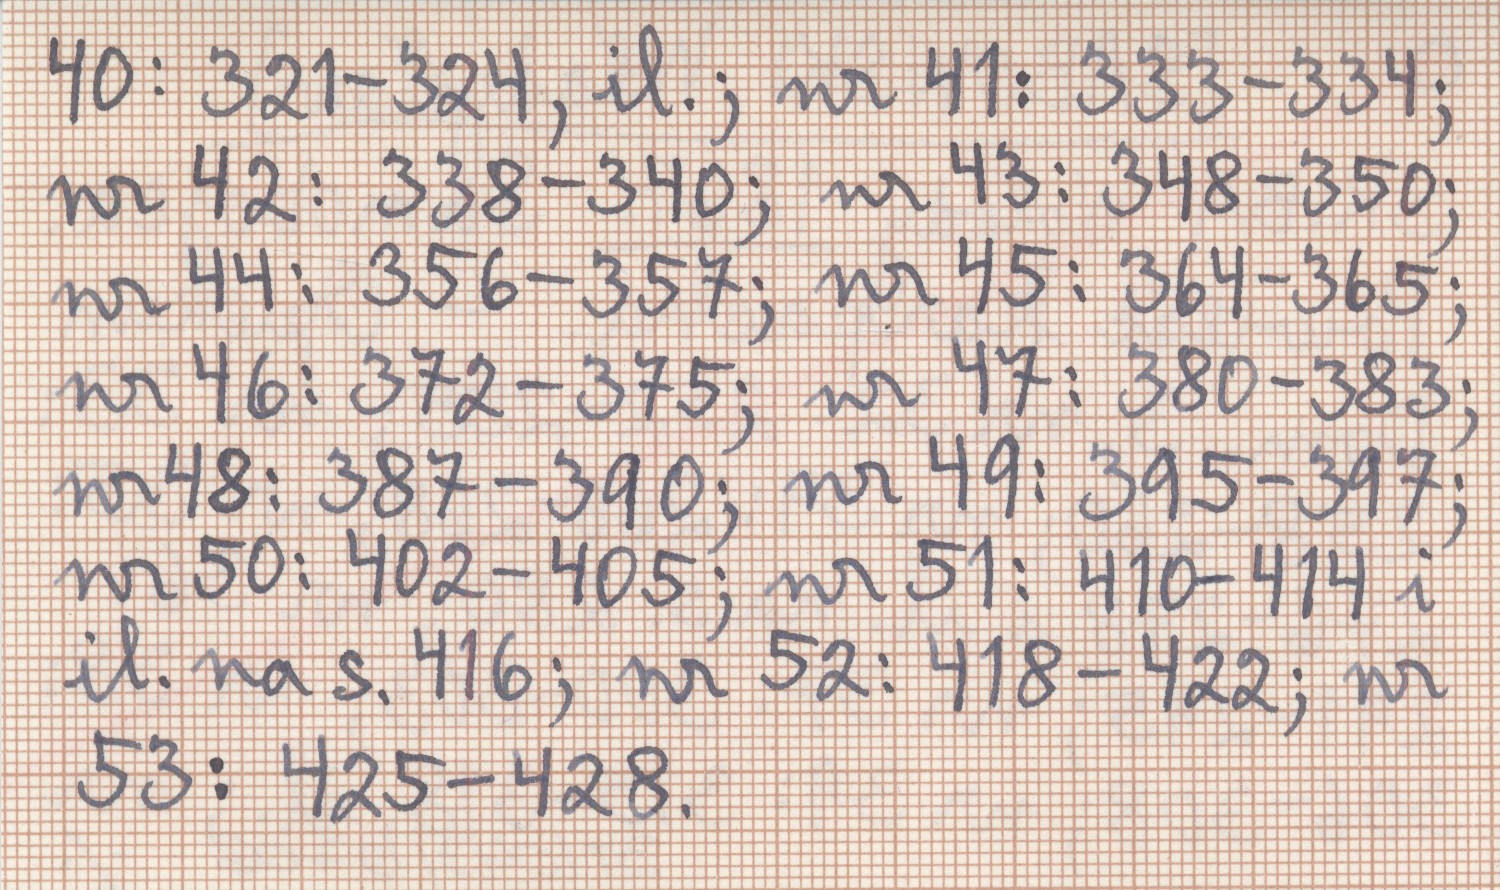 40: 321-324, il.; nr 41: 333-334;
nr 42: 338-340; nr 43: 348-350;
nr 44: 356-357; nr 45: 364-365;
nr 46: 372-375; nr 47: 380-383;
nr 48: 387-390; nr 49: 395-397;
nr 50: 402-405; nr 51: 410-414 i
il. na s. 416; nr 52: 418-422; nr
53: 425-428.